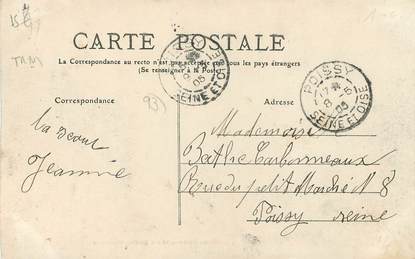 CARTE POSTALE
La Correspondance au recto n'est pas acceptée par tous les pays étrangers
(Se renseigner à la Poste)
POISSY
8 - 5
05
SEINE ET OISE
SEINE ET OISE
Correspondance
Adresse
Ta sœur
Jeanne
Mademoise
Berthe Carbonneaux
Rue du petit Marché N 8
Poissy Seine